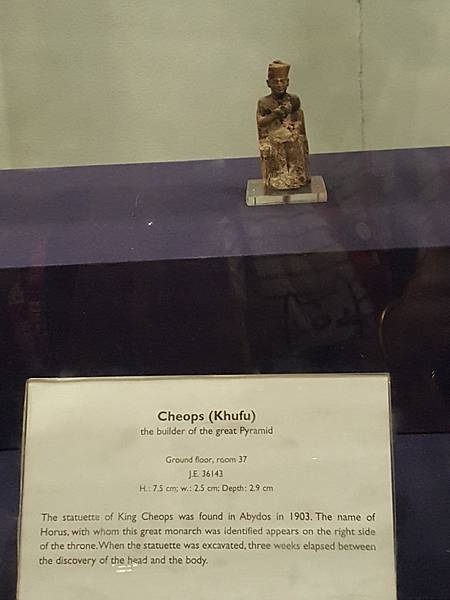 Cheops (Khufu)
the builder of the great Pyramid
Ground floor, room 37
J.E. 36143
H.: 7.5 cm; w.: 2.5 cm; Depth: 2.9 cm
The statuette of King Cheops was found in Abydos in 1903. The name of
Horus, with whom this great monarch was identified appears on the right side
of the throne. When the statuette was excavated, three weeks elapsed between
the discovery of the head and the body.